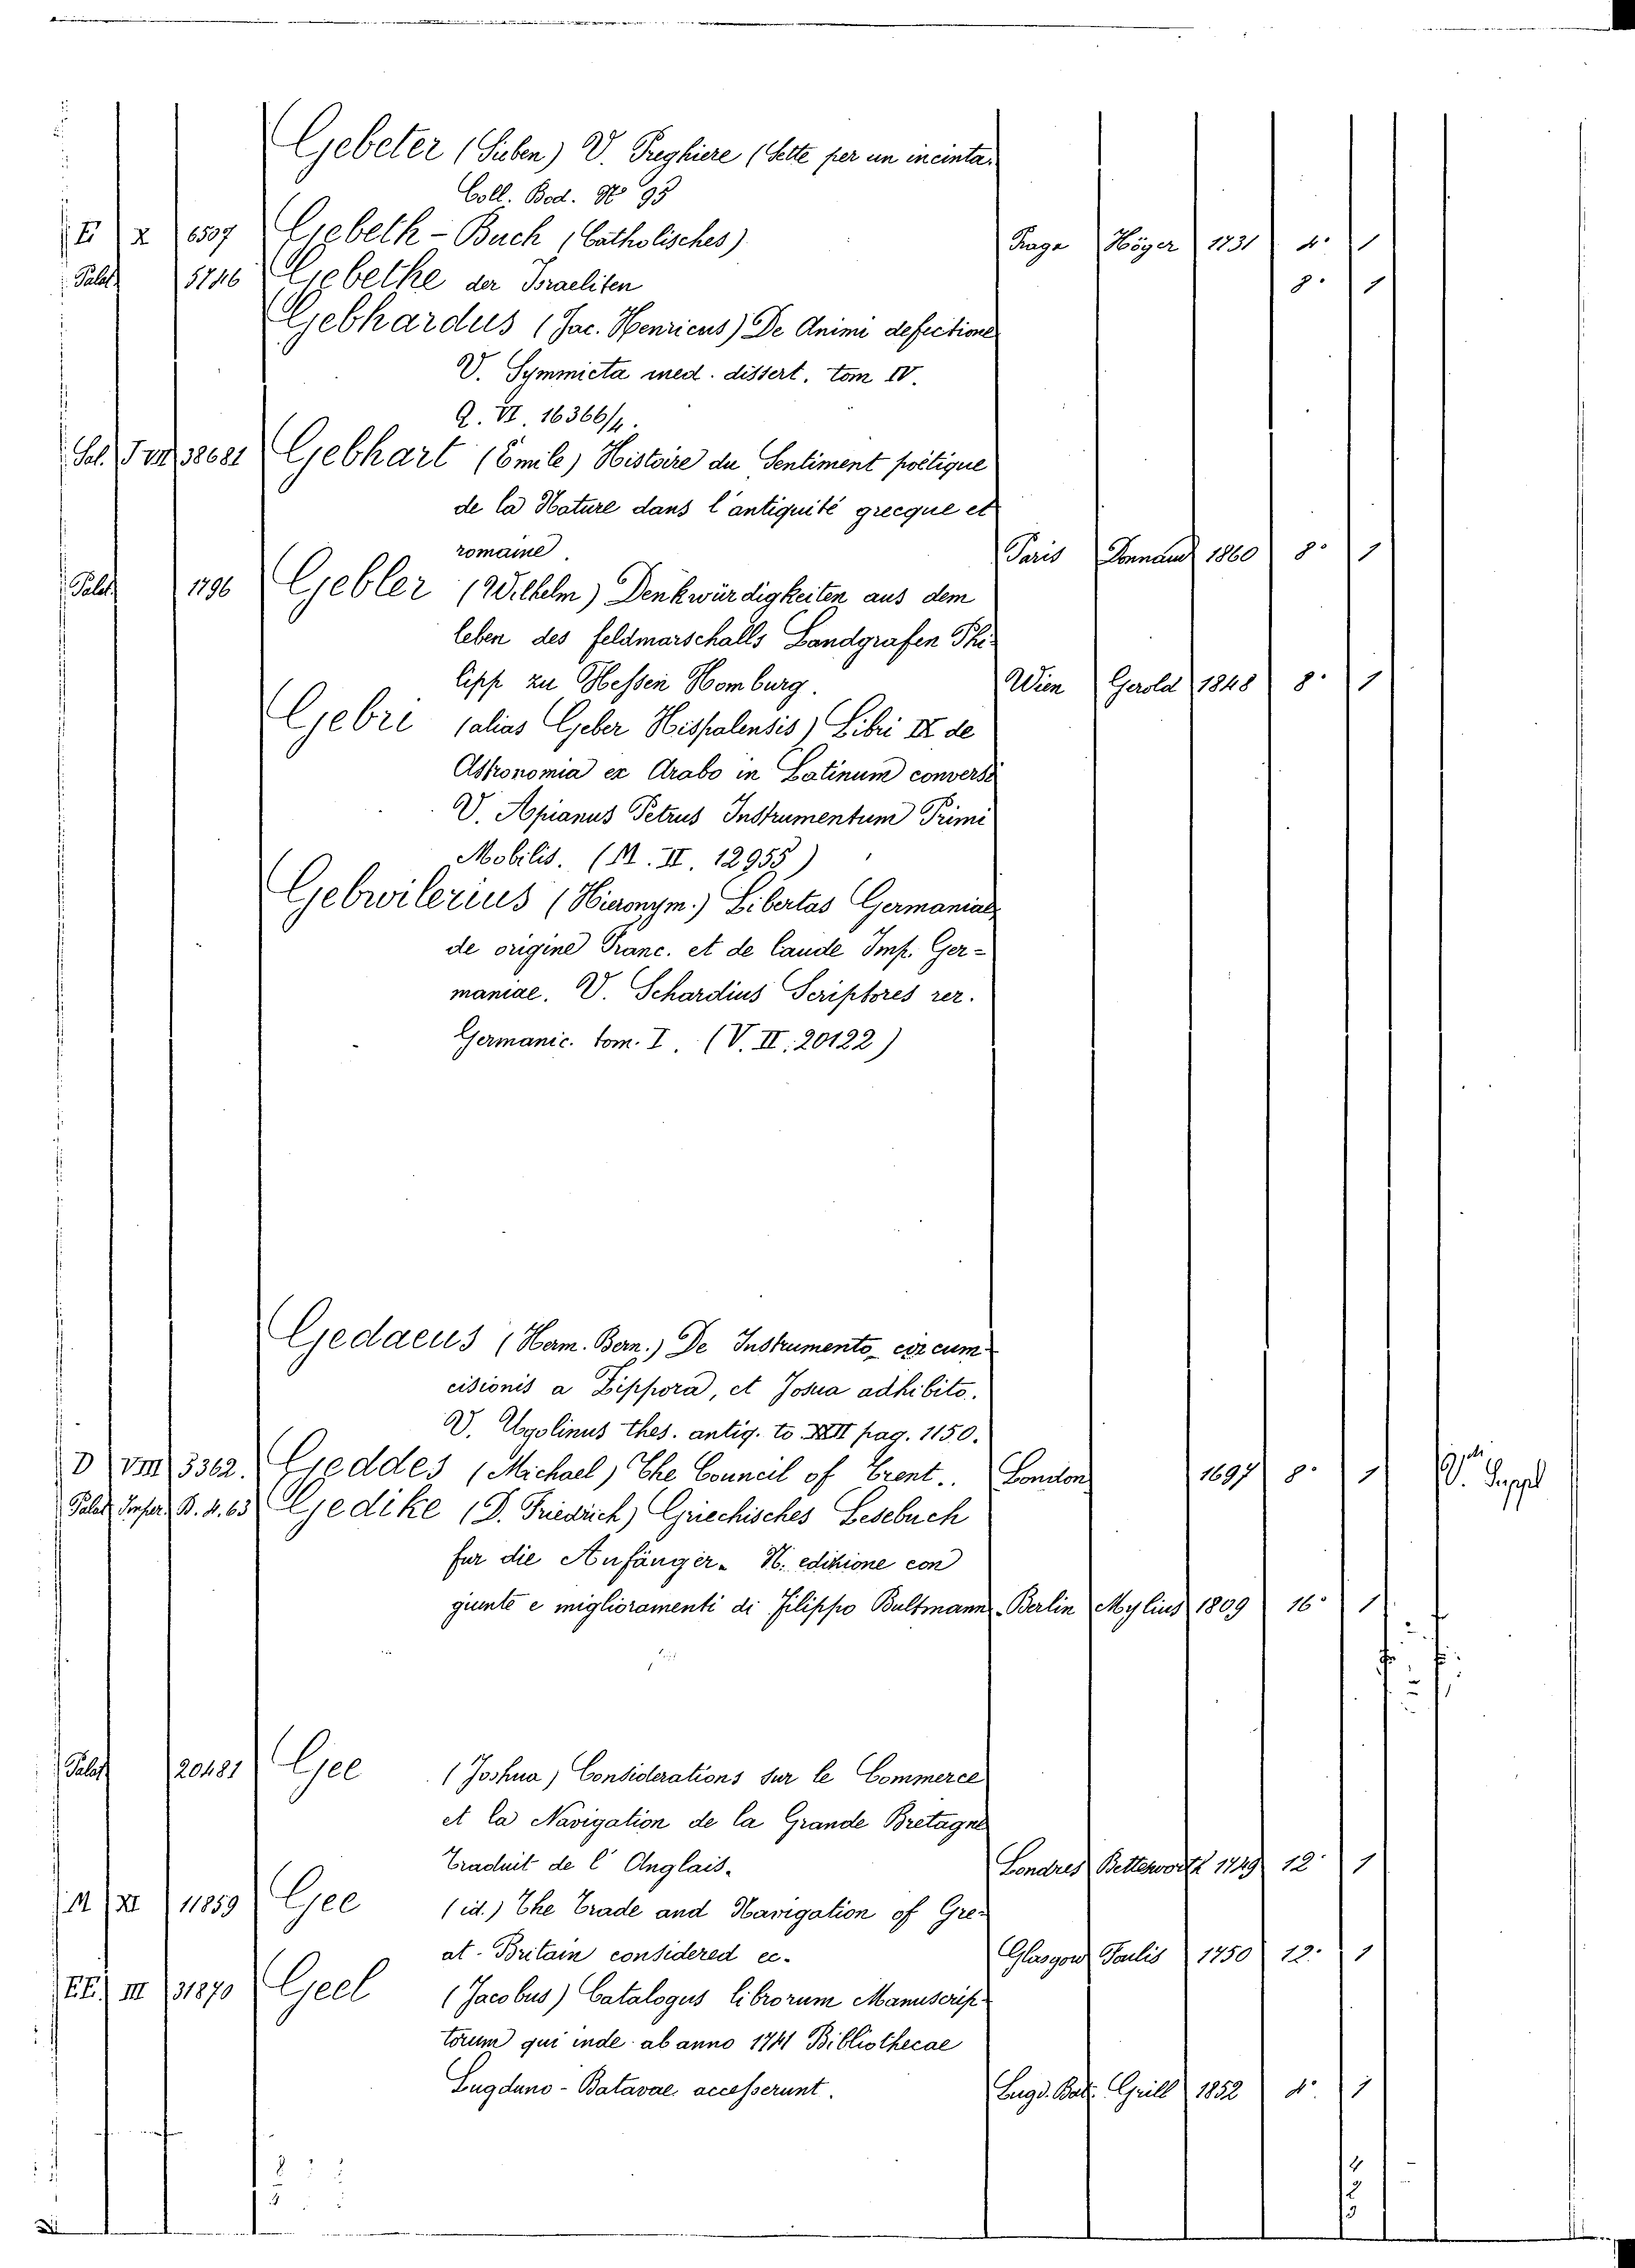 Gebeter (Sieben) V. Preghiere (Sette per un incinta.
Coll. Bod. No 95
E X 6507 Gebeth-Buch (Catholisches) Praga Höger 1731 4º 1
Palat. 5746 Gebethe der Israeliten 8º 1
Gebhardus (Jac. Henricus) De Animi defectione
V. Symmicta med. dissert. tom IV.
Q. VI. 16366/4.
Sal. T VII 38681 Gebhart (Emile) Histoire du Sentiment poëtique
de la Nature dans l'antiquité grecque et
romaine. Paris 1860 8º 1
Palat. 1796 Gebler (Wilhelm) Denkwürdigkeiten aus dem
leben des feldmarschalls Landgrafen Phi-
lipp zu Hessen Homburg. Wien Gerold 1848 8º 1
Gebri (alias Geber Hispalensis) Libri IX de
Astronomia ex Arabo in Latinum conversi
V. Apianus Petrus Instrumentum Primi
Mobilis. (M. II. 12955)
Gebwilerius (Hieronym.) Libertas Germaniae,
de origine Franc. et de laude Imp. Ger=
maniae. V. Schardius Scriptores rer.
Germanic. tom. I. (V. II. 20122)
Gedaeus (Herm. Bern.) De Instrumento circum-
cisionis a Zippora, et Josua adhibito.
V. Ugolinus thes. antiq. to XXII pag. 1150.
D VIII 5362. Geddes (Michael) The Council of Trent.. London 1697 8º 1 V. Suppl
Palat. Imper. B. 4. 63 Gedike (D. Friedrich) Griechisches Lesebuch
fur die Anfänger. N. edizione con
giunte e miglioramenti di Filippo Bultmann - Berlin Mylius 1809 16º 1
Palat 20481 Gee (Joshua) Considerations sur le Commerce
et la Navigation de la Grande Bretagne
Traduit de l'Anglais. Londres Betteworth 1749 12º 1
M XI 11859 Gee (id.) The Trade and Navigation of Gre-
at-Britain considered ec. Glasgow Foulis 1750 12º 1
EE. III 31870 Geel (Jacobus) Catalogus librorum Manuscrip-
torum qui inde ab anno 1741 Bibliothecae
Lugduno-Batavae accesserunt. Lugd. Bat. Grill 1852 4º 1